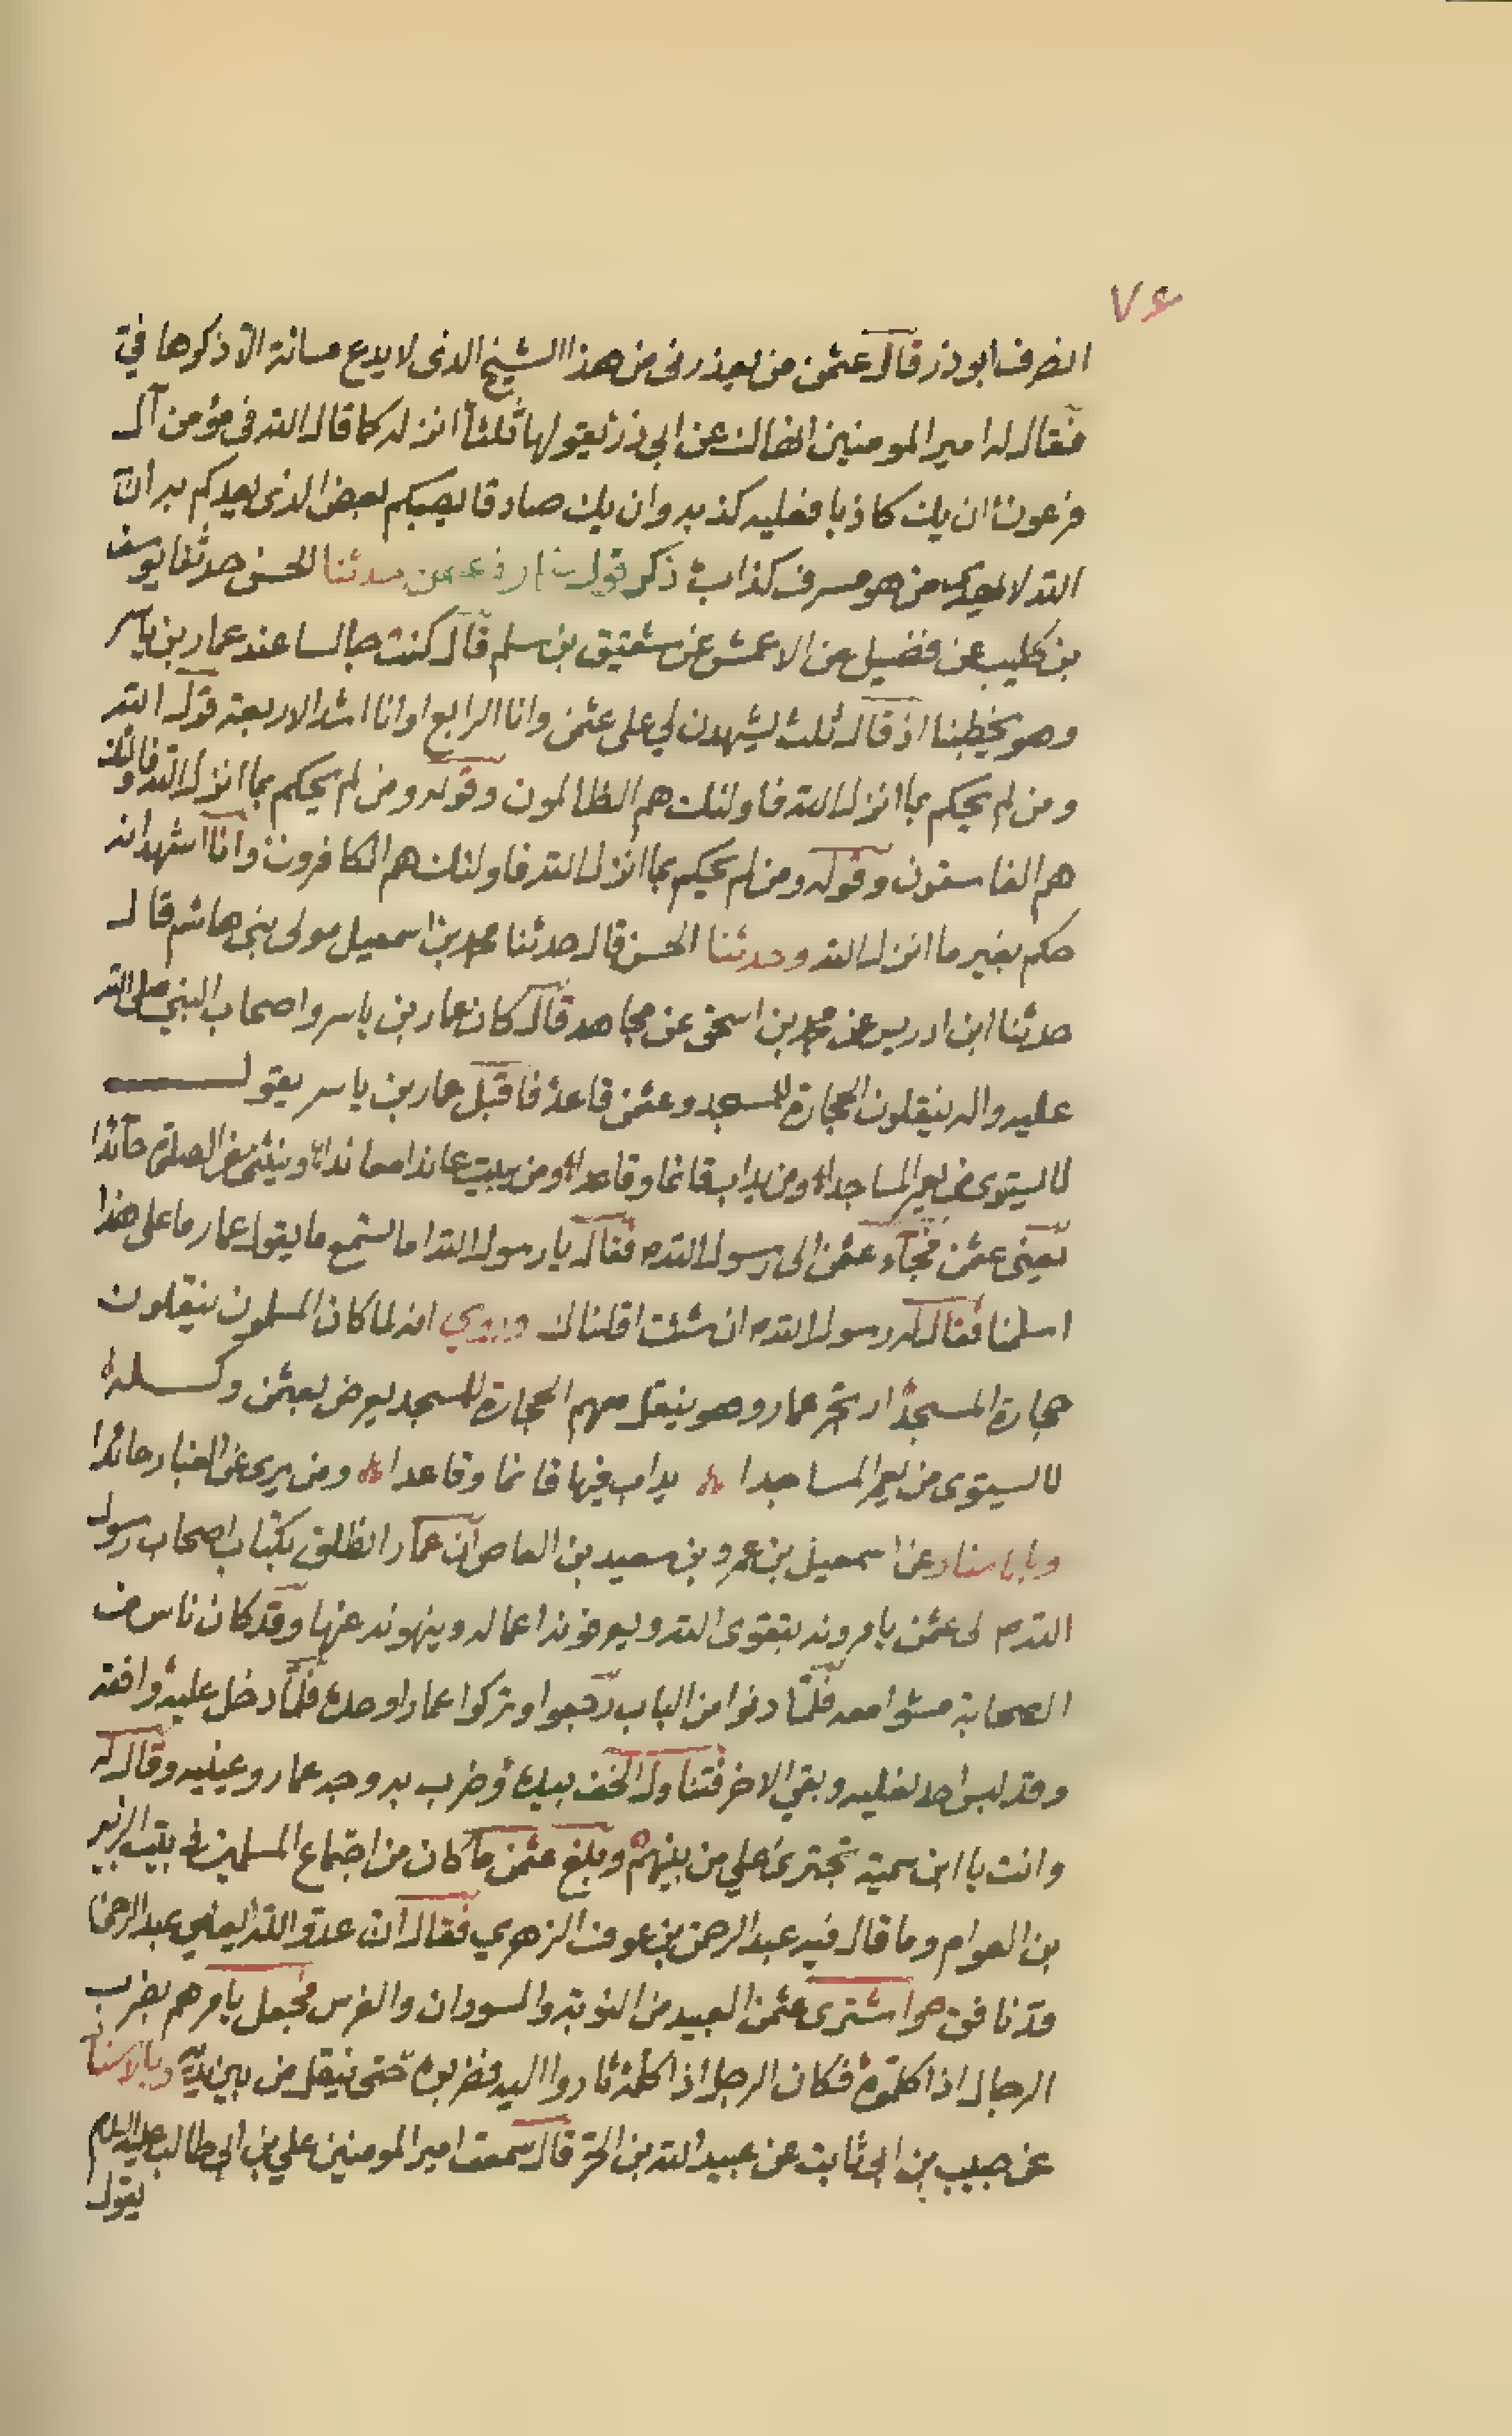 ٧٤
انصرف ابوذر قال عثمن من يعذرنى من هذا الشيخ الذى لا يدع مسائة الا ذكرها فيّ
فقال له امير المومنين انهاك عن ابى ذر يقولها ثلثا انزله كما قال الله فى مؤمن آل
فرعون ان يك كاذبا فعليه كذبه وان يك صادقا يصبكم بعض الذى يعدكم به ان
الله لا يهدى من هو مسرف كذاب ذكر قول عمار فى عثمن حدثنا الحسن حدثنا يوسف
بن كليب عن فضيل عن الاعمش عن شقيق بن سلم قال كنت جالسا عند عمار بن ياسر
وهو يخطبنا اذ قال ثلث يشهدن لي على عثمن وانا الرابع او انا اشد الاربعة قوله الله
ومن لم يحكم بما انزل الله فاولئك هم الظالمون وقوله ومن لم يحكم بما انزل الله فاولئك
هم الفاسقون وقوله ومن لم يحكم بما انزل الله فاولئك هم الكافرون وانا اشهد انه
حكم بغير ما انزل الله وحدثنا الحسن قال حدثنا محمد بن اسمعيل مولى بنى هاشم قال
حدثنا ابن ادريس عن محمد بن اسحق عن مجاهد قال كان عمار بن ياسر واصحاب النبي صلى الله
عليه واله ينقلون الحجارة للمسجد وعثمن قاعد فاقبل عمار بن ياسر يقول
لا يستوى من يعمر المساجدا ومن يداب قائما وقاعدا ومن يبيت عاندا معاندا وينثنى عن الصلوة حائدا
يعنى عثمن فجآء عثمن الى رسول الله م فقال يا رسول الله اما تسمع ما يقول عمار ما على هذا
اسلمنا فقال له رسول الله م ان شئت اقلناك وروي انه لما كان المسلمون ينقلون
حجارة المسجد ارتجز عمار وهو ينقل معهم الحجارة للمسجد يعرض بعثمن وكسله
لا يستوى من يعمر المساجدا يداب فيها قائما وقاعدا ومن يرى عن الغبار حائدا
وبالاسناد عن اسمعيل بن عمرو بن سعيد بن العاص ان عمارا نطلق بكتاب اصحاب رسول
الله م لى عثمن يامرونه بتقوى الله ويعرفونه اعماله وينهونه عنها وقد كان ناس من
الصحابة مشوا معه فلما دنوا من الباب رجعوا وتركوا عمارا وحده فلما دخل عليه وافقه
وقد لبس احد نعليه وبقي الاخر فتناول الخف بيده فضرب به وجه عمار وعينيه وقال له
وانت يا ابن سمية تجترئ علي من بينهم وبلغ عثمن ما كان من اجتماع المسلمين فى بيت الزبير
بن العوام وما قال فيه عبد الرحمن بن عوف الزهري فقال ان عدو الله يعني عبد الرحمن
قد نافق هو اشترى عثمن العبيد من النوبة والسودان والفرس فجعل يامرهم بضرب
الرجال اذا كلموه فكان الرجل اذا كلمه ثاروا اليه فضربوه حتى ينقل من بين يديه وبالاسنا
عن حبيب بن ابى ثابت عن عبيد الله بن الحر قال سمعت امير المومنين علي بن ابى طالب عليه السلام
يقول